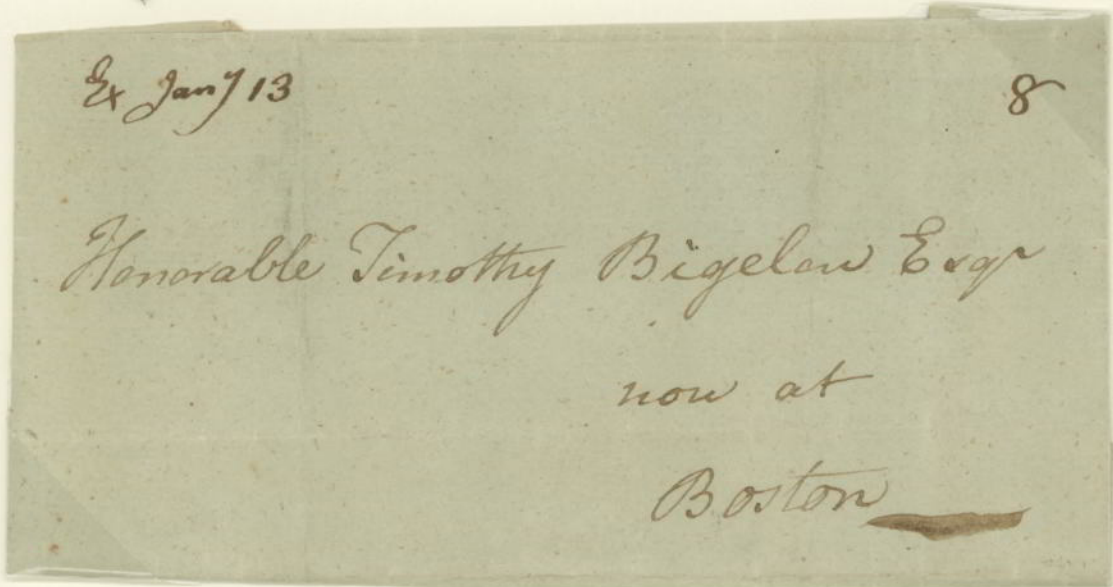 Ex Jany 13
8
Honorable Timothy Bigelow Esqr
now at
Boston